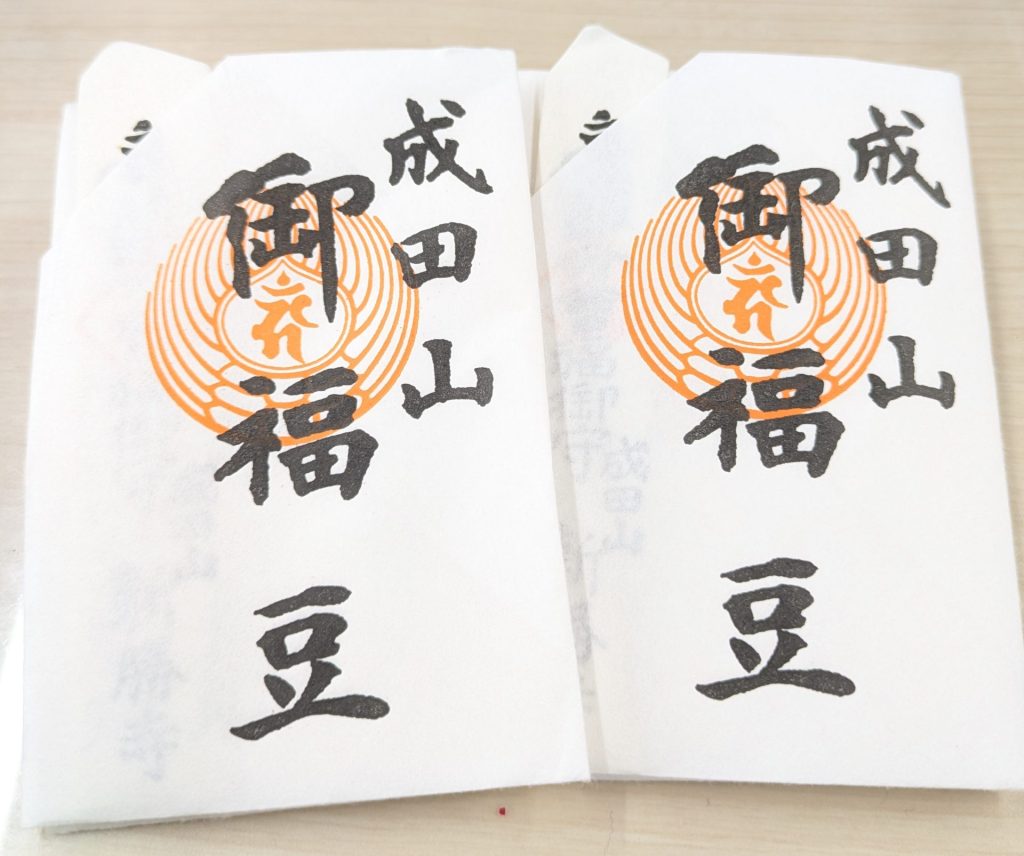 成田山
御福豆
成田山
御福豆